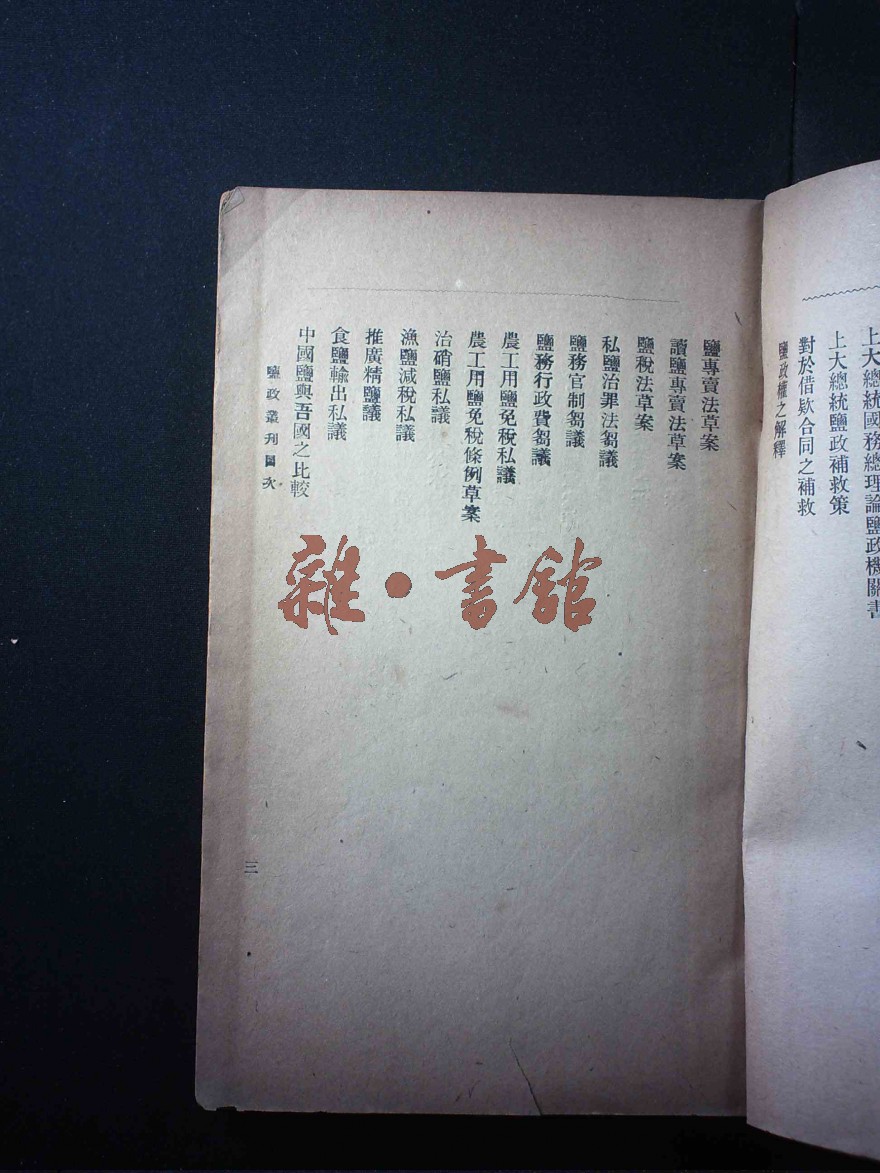 上大總統國務總理論鹽政機關書
上大總統鹽政補救策
對於借欵合同之補救
鹽政權之解釋
鹽專賣法草案
讀鹽專賣法草案
鹽稅法草案
私鹽治罪法芻議
鹽務官制芻議
鹽務行政費芻議
農工用鹽免稅私議
農工用鹽免稅條例草案
治硝鹽私議
漁鹽減稅私議
推廣精鹽議
食鹽輸出私議
中國鹽與吾國之比較
鹽政叢刊目次
三
雜·書館